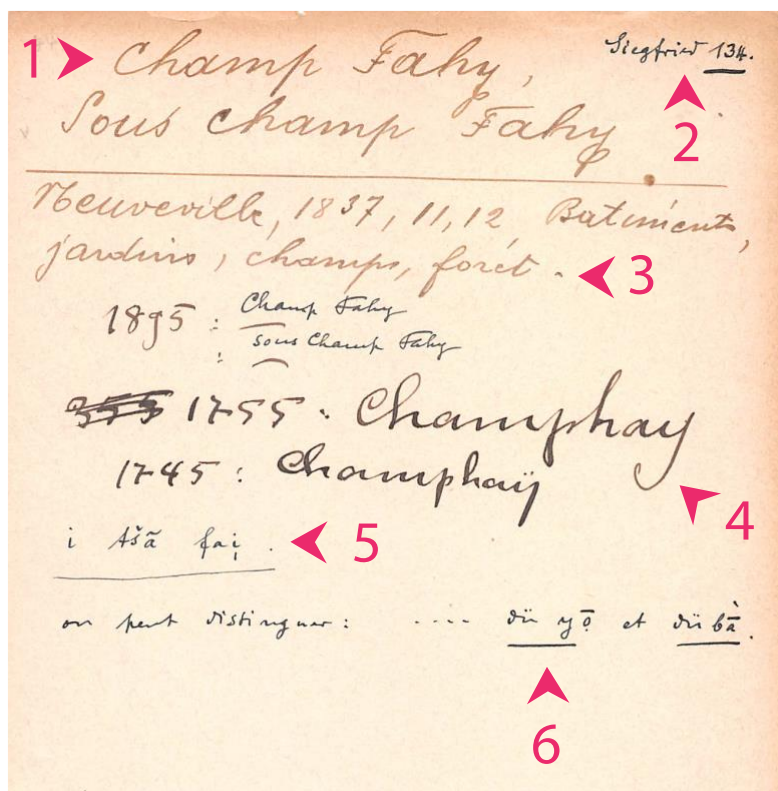 1 Champ Fahy, Siegfried 134.
2
Sous champ Fahy
Neuveville, 1837, 11, 12 Batiments,
jardins, champs, forêt. 3
1895 : Champ Fahy
: sous Champ Fahy
1755 : Champhay
1745 : Champhaÿ
4
i tšã fai̯ . 5
on peut distinguer : .... dü yō̜ et dü bā̀.
6